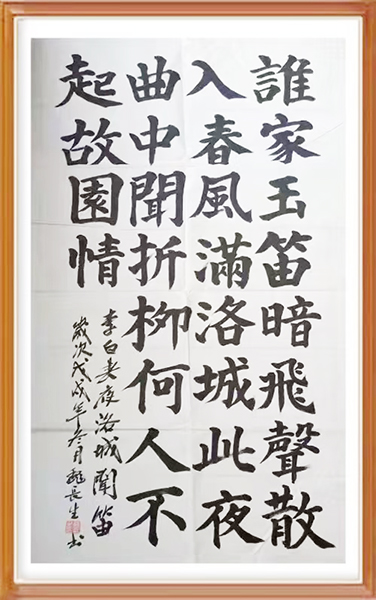 誰家玉笛暗飛聲散
入春風滿洛城此夜
曲中聞折柳何人不
起故園情
李白春夜洛城聞笛
歲次戊戌年冬月魏長生书